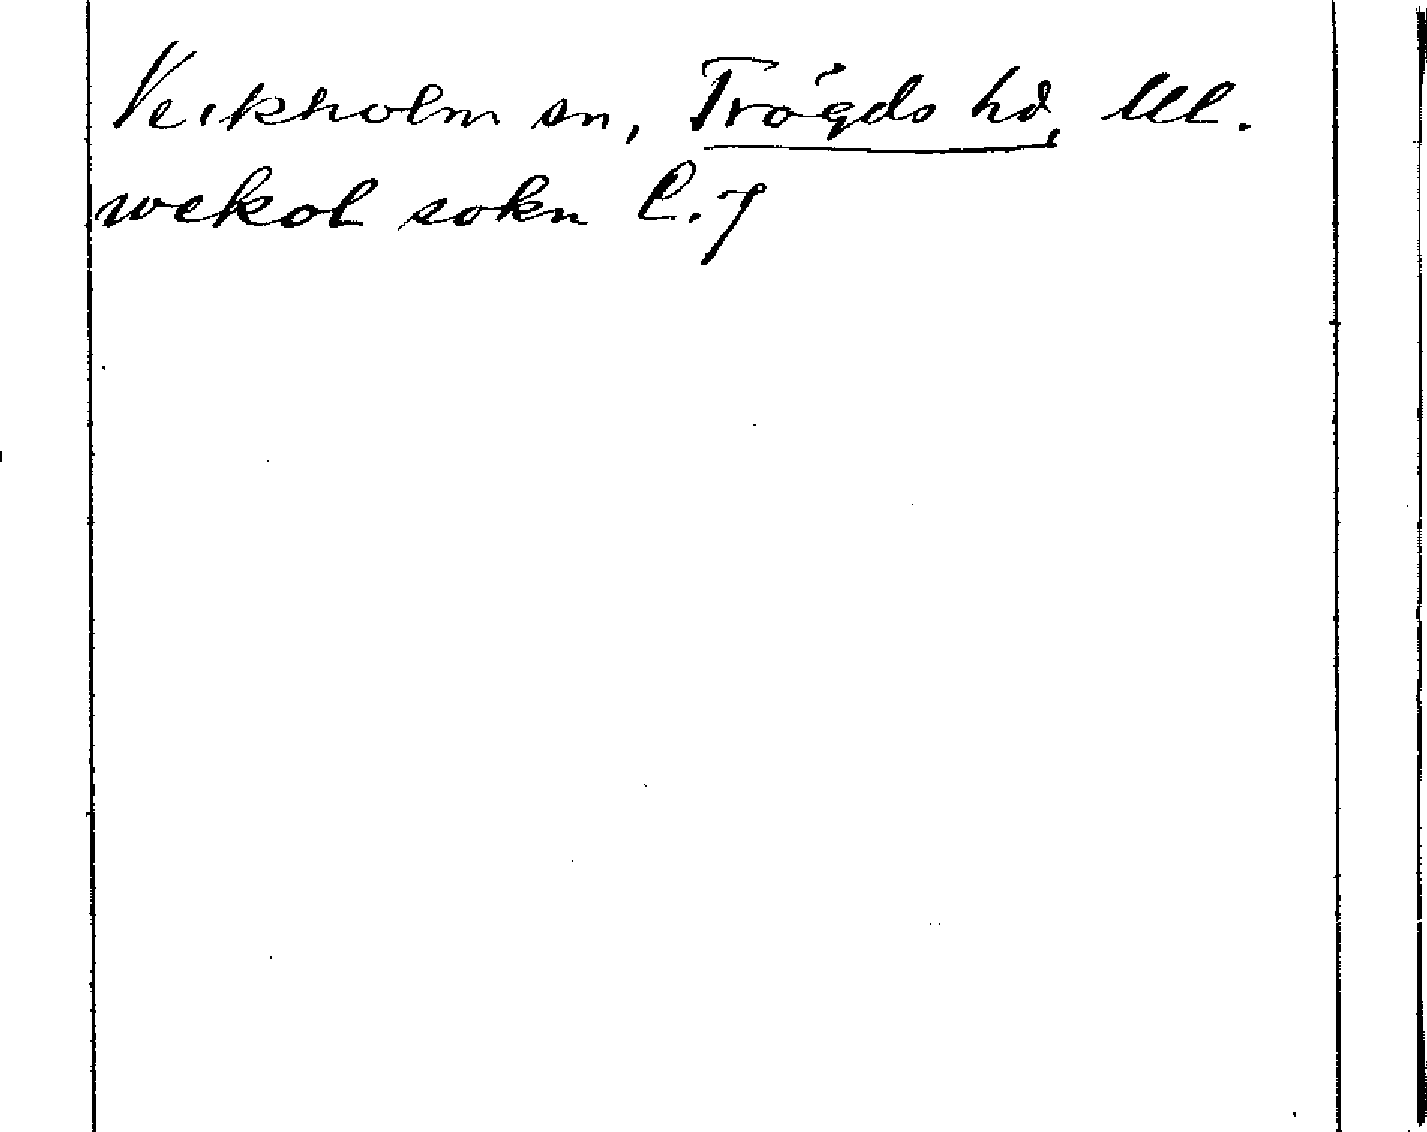 Veckholm sn, Trögds hd, Ul.
wekol sokn l. 7